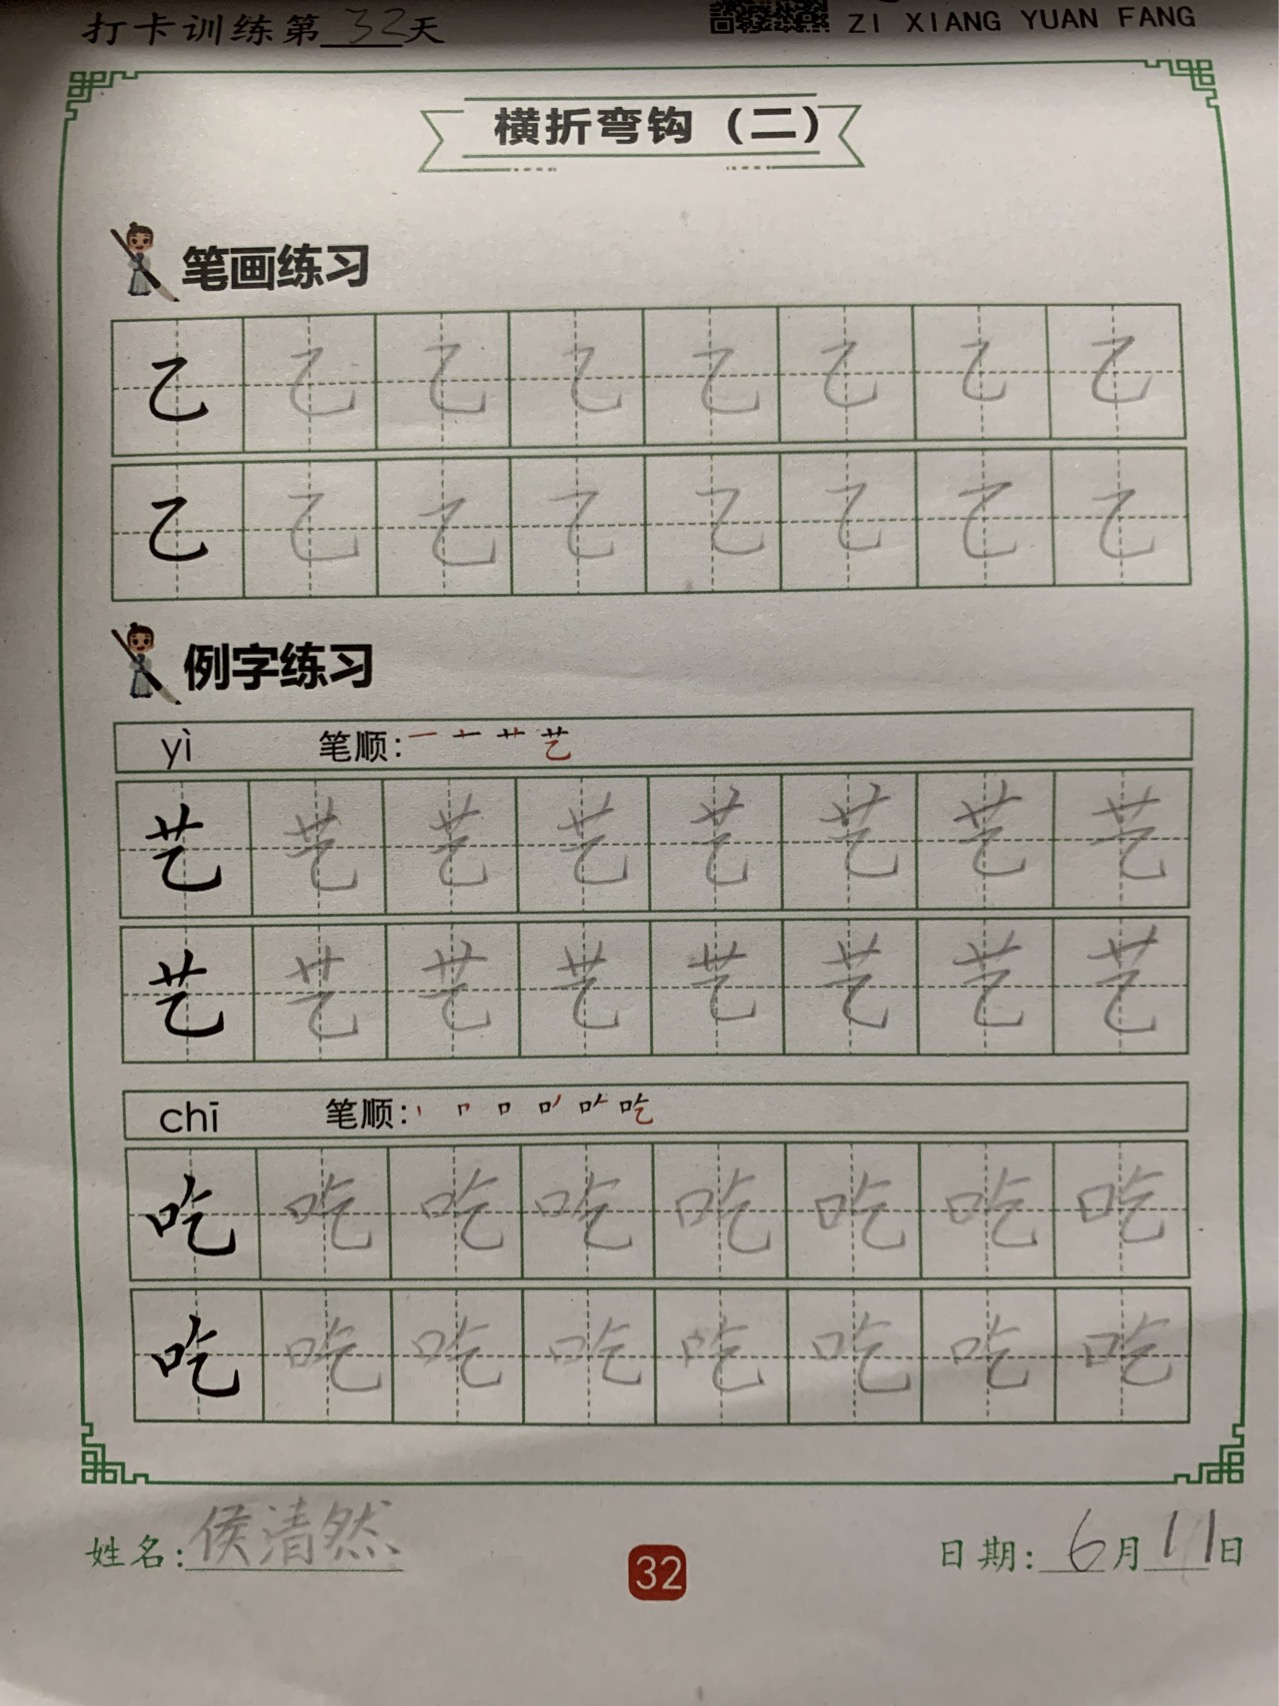 打卡训练第32天
ZI XIANG YUAN FANG
横折弯钩（二）
笔画练习
乙 乙 乙 乙 乙 乙 乙 乙
乙 乙 乙 乙 乙 乙 乙 乙
例字练习
yì 笔顺: 一 十 艹 艺
艺 艺 艺 艺 艺 艺 艺 艺
艺 艺 艺 艺 艺 艺 艺 艺
chī 笔顺:
吃 吃 吃 吃 吃 吃 吃 吃
吃 吃 吃 吃 吃 吃 吃 吃
姓名: 侯清然
32
日期: 6月11日